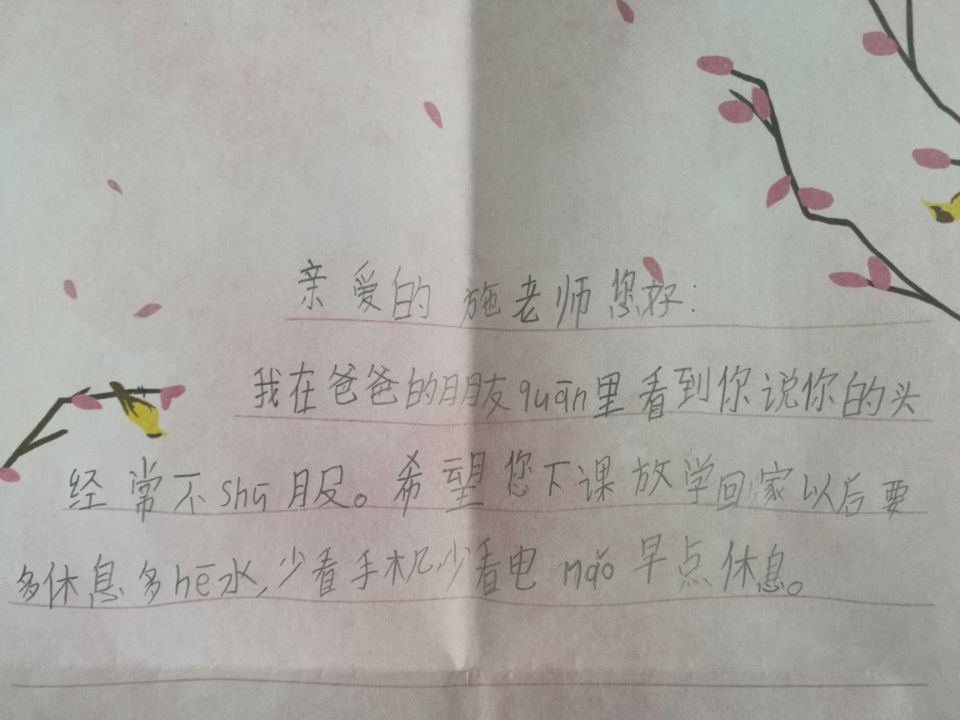 亲爱的施老师您好：
我在爸爸的朋友quān里看到你说你的头
经常不shū服。希望您下课放学回家以后要
多休息多hē水，少看手机少看电nǎo早点休息。